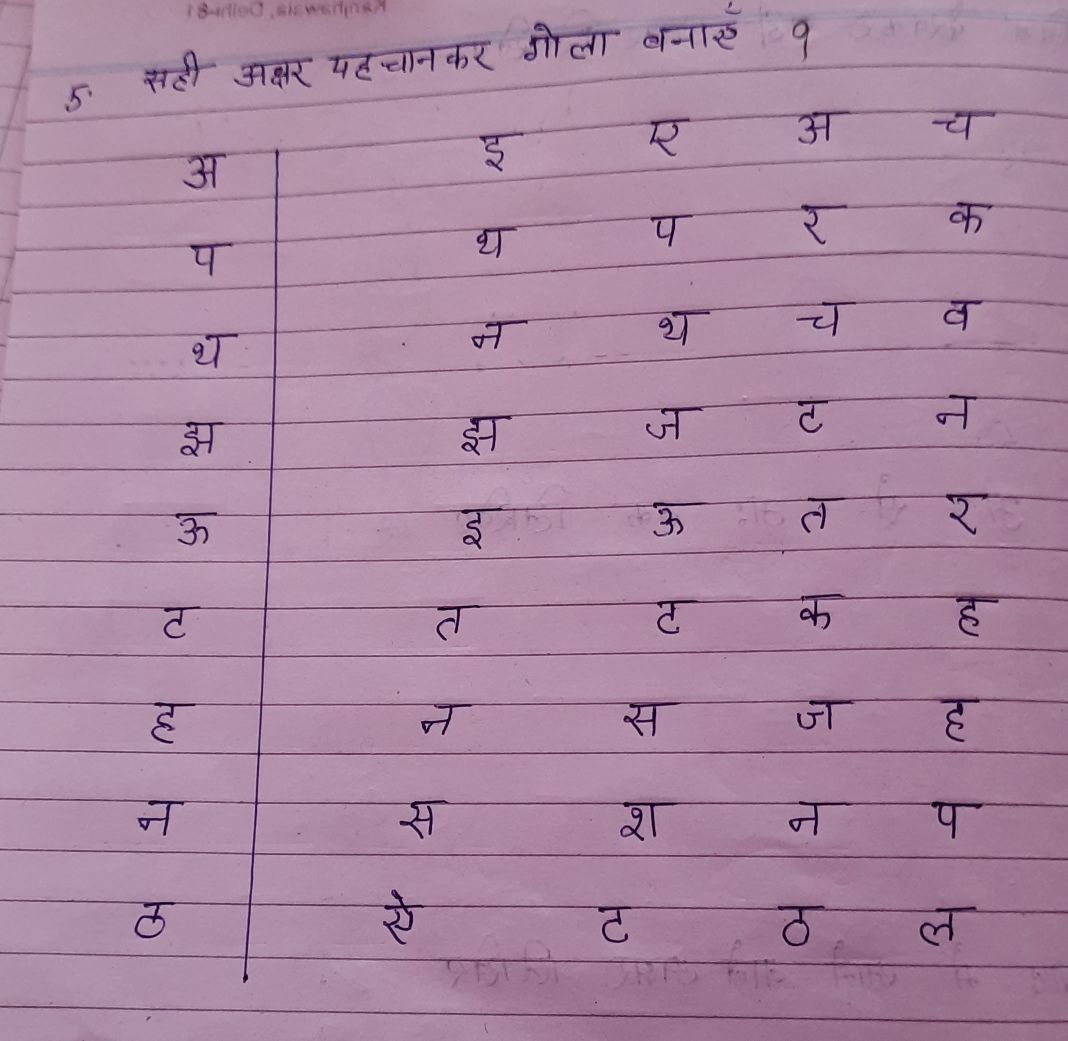 5. सही अक्षर पहचानकर गोला बनाएँ १
अ इ ए अ च
प थ प र क
थ न थ च व
झ झ ज ट न
ऊ इ ऊ त र
ट त ट क ह
ह न स ज ह
न स श न प
ठ ऐ ट ठ ल